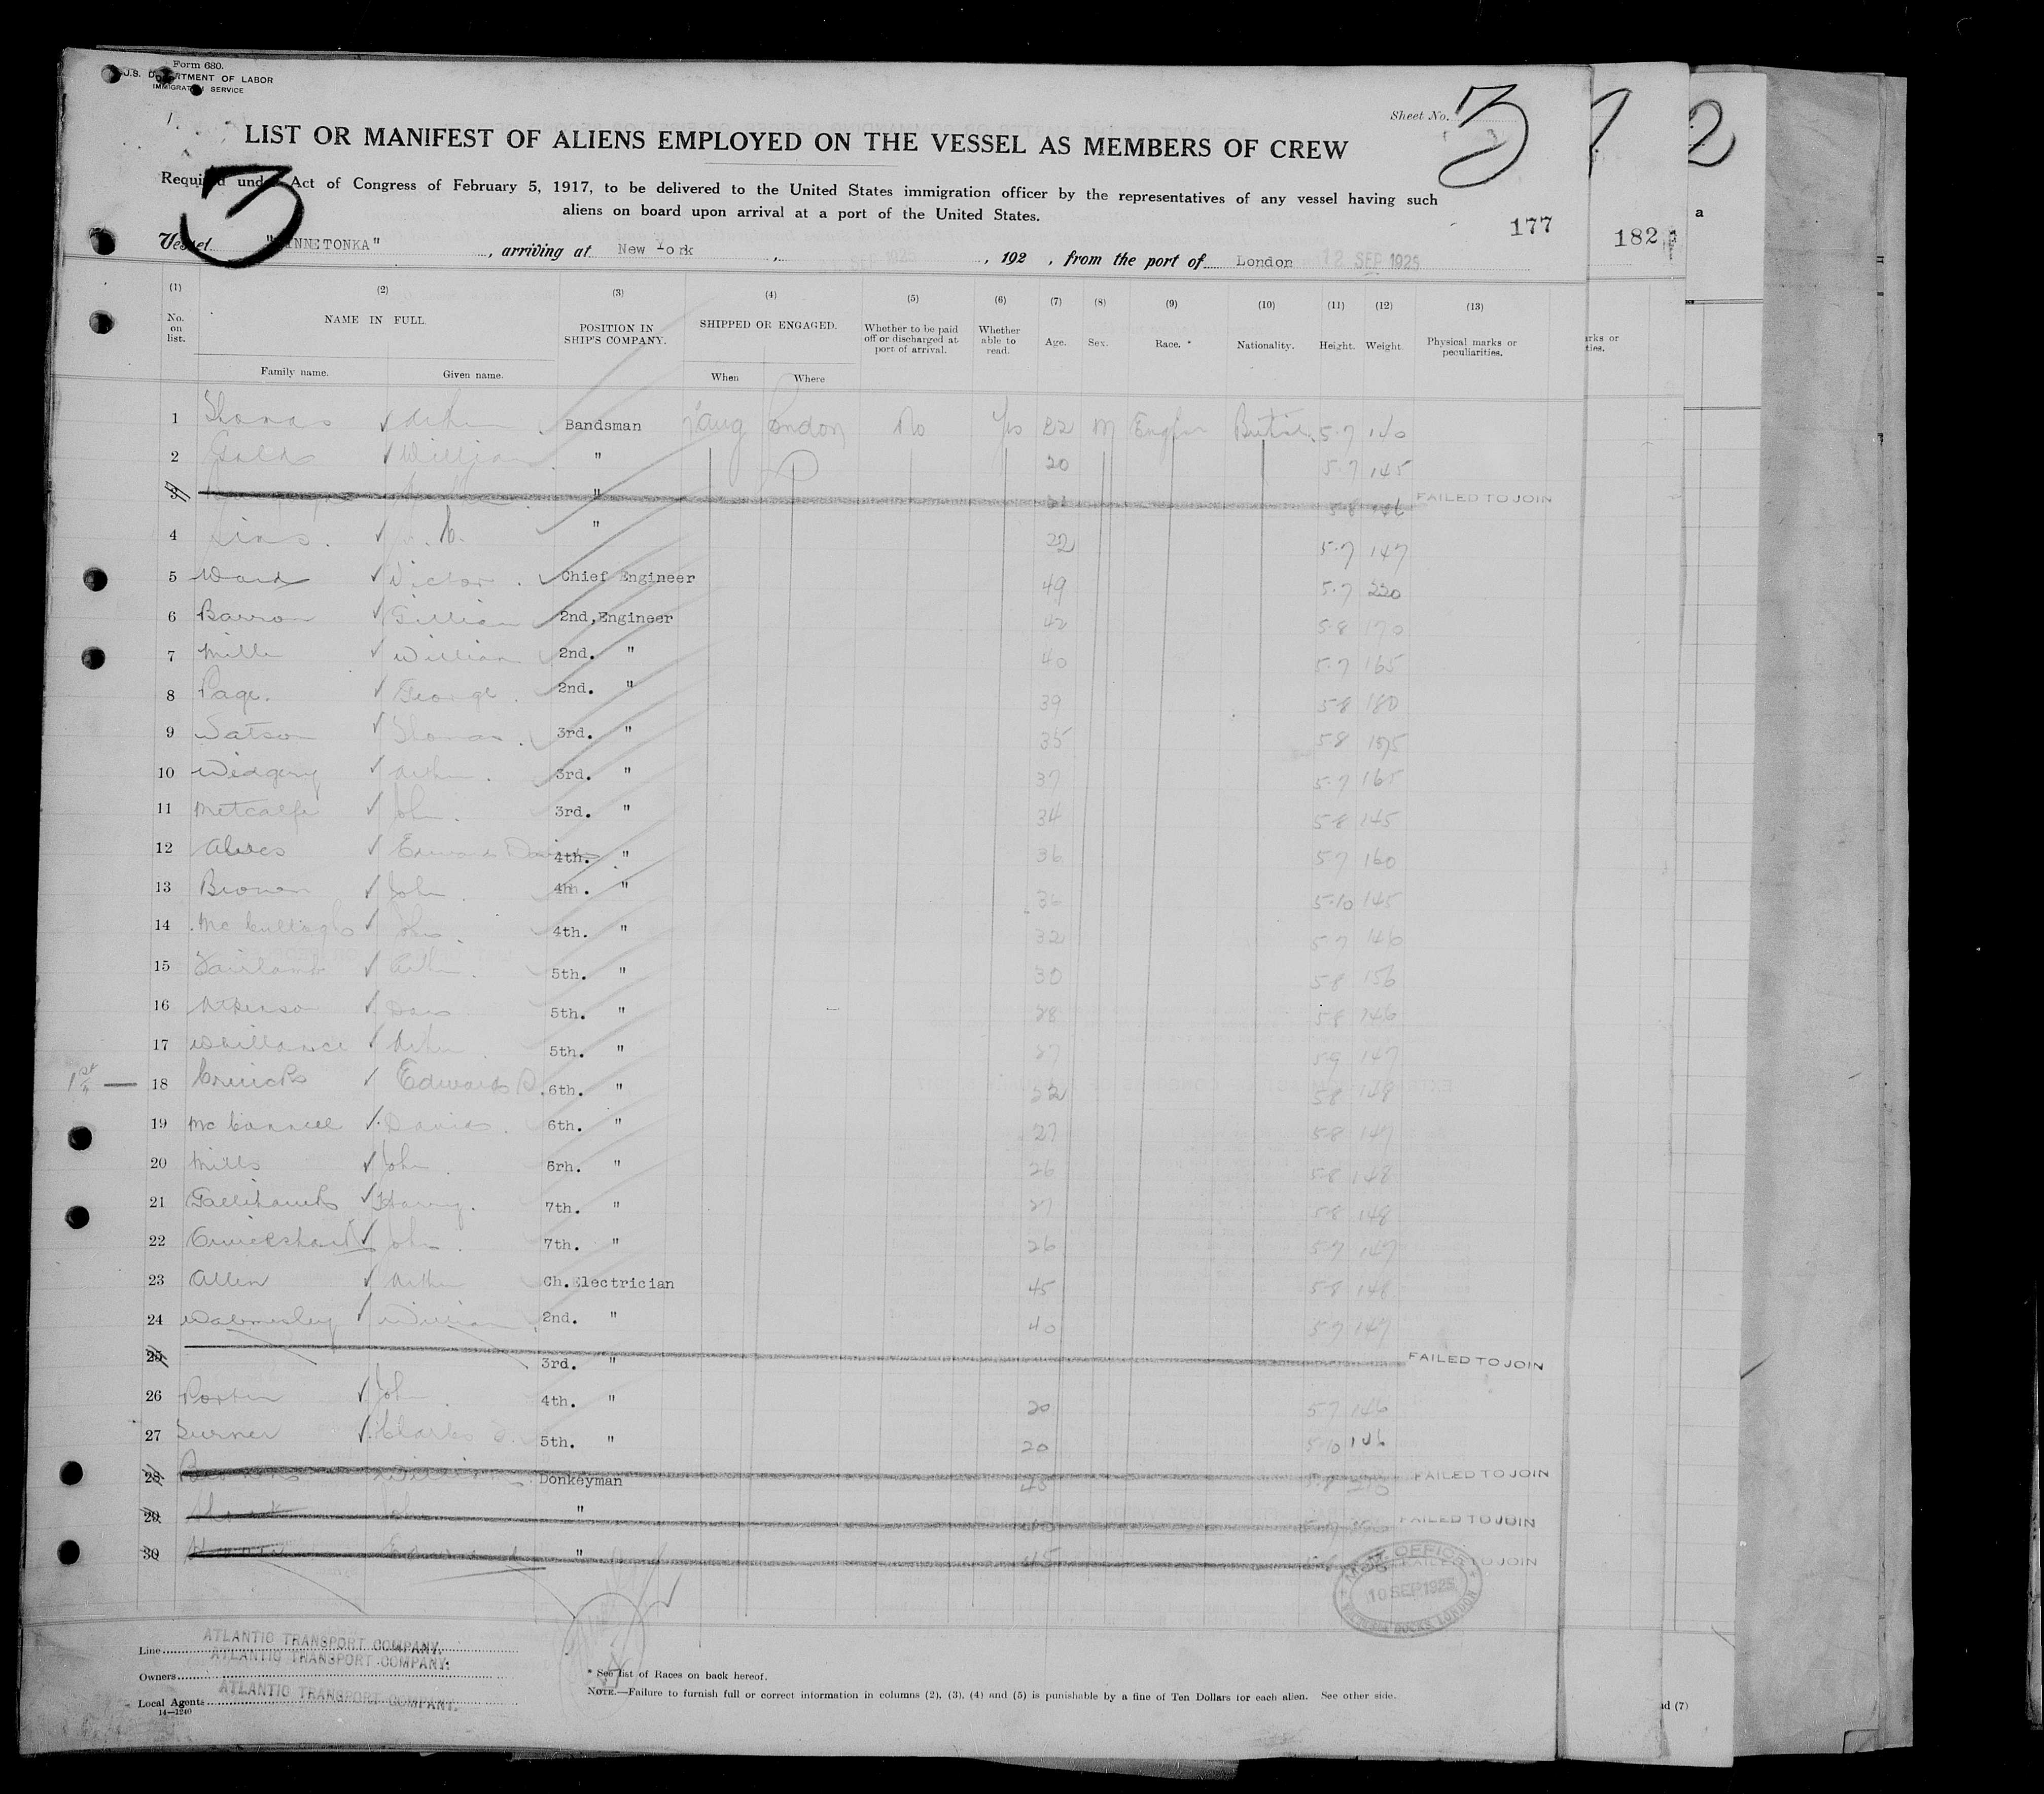 Form 680.
U.S. DEPARTMENT OF LABOR
IMMIGRATION SERVICE
Sheet No. 3
LIST OR MANIFEST OF ALIENS EMPLOYED ON THE VESSEL AS MEMBERS OF CREW
3
Required under Act of Congress of February 5, 1917, to be delivered to the United States immigration officer by the representatives of any vessel having such
aliens on board upon arrival at a port of the United States.
177
182
2
a
Vessel "MINNETONKA", arriving at New York, SEP 1925, 192 , from the port of London 12 SEP 1925
(1) (2) (3) (4) (5) (6) (7) (8) (9) (10) (11) (12) (13)
No. on list. NAME IN FULL. POSITION IN SHIP'S COMPANY. SHIPPED OR ENGAGED. Whether to be paid off or discharged at port of arrival. Whether able to read. Age. Sex. Race. * Nationality. Height. Weight. Physical marks or peculiarities.
Family name. Given name. When Where
1 Thomas Arthur Bandsman Aug London No Yes 22 M English British 5-7 140
2 William " 20 5-7 145
3 " 5-8 146 FAILED TO JOIN
4 " 22 5-7 147
5 Ward Victor Chief Engineer 49 5-7 220
6 Barron William 2nd, Engineer 42 5-8 170
7 William 2nd. " 40 5-7 165
8 Page. George 2nd. " 39 5-8 180
9 Watson Thomas 3rd. " 35 5-8
10 Widgery Arthur 3rd. " 37 5-7 165
11 Metcalfe John 3rd. " 34 5-8 145
12 Edward David 4th. " 36 5-7 160
13 John 4th. " 36 5-10 145
14 McCullagh John 4th. " 32 5-7 146
15 Arthur 5th. " 30 5-8 156
16 5th. " 28 5-8 146
17 Arthur 5th. " 27 5-9 147
18 Edward 6th. " 22 5-8 148
19 McConnell David 6th. " 27 5-8 147
20 Mills John 6rh. " 26 5-8 148
21 Harry. 7th. " 27 5-8 148
22 Cruickshank John 7th. " 26 5-7 147
23 Allen Arthur Ch. Electrician 45 5-8 148
24 Walmesley William 2nd. " 40 5-7 147
25 3rd. " FAILED TO JOIN
26 Porter John 4th. " 20 5-7 146
27 Turner Charles 5th. " 20 5-10 146
28 William Donkeyman 45 5-8 FAILED TO JOIN
29 John " 40 5-7 FAILED TO JOIN
30 Edward " 45 FAILED TO JOIN
10 SEP 1925
Line ATLANTIC TRANSPORT COMPANY.
Owners ATLANTIC TRANSPORT COMPANY.
Local Agents ATLANTIC TRANSPORT COMPANY.
14—1240
* See list of Races on back hereof.
NOTE.—Failure to furnish full or correct information in columns (2), (3), (4) and (5) is punishable by a fine of Ten Dollars for each alien. See other side.